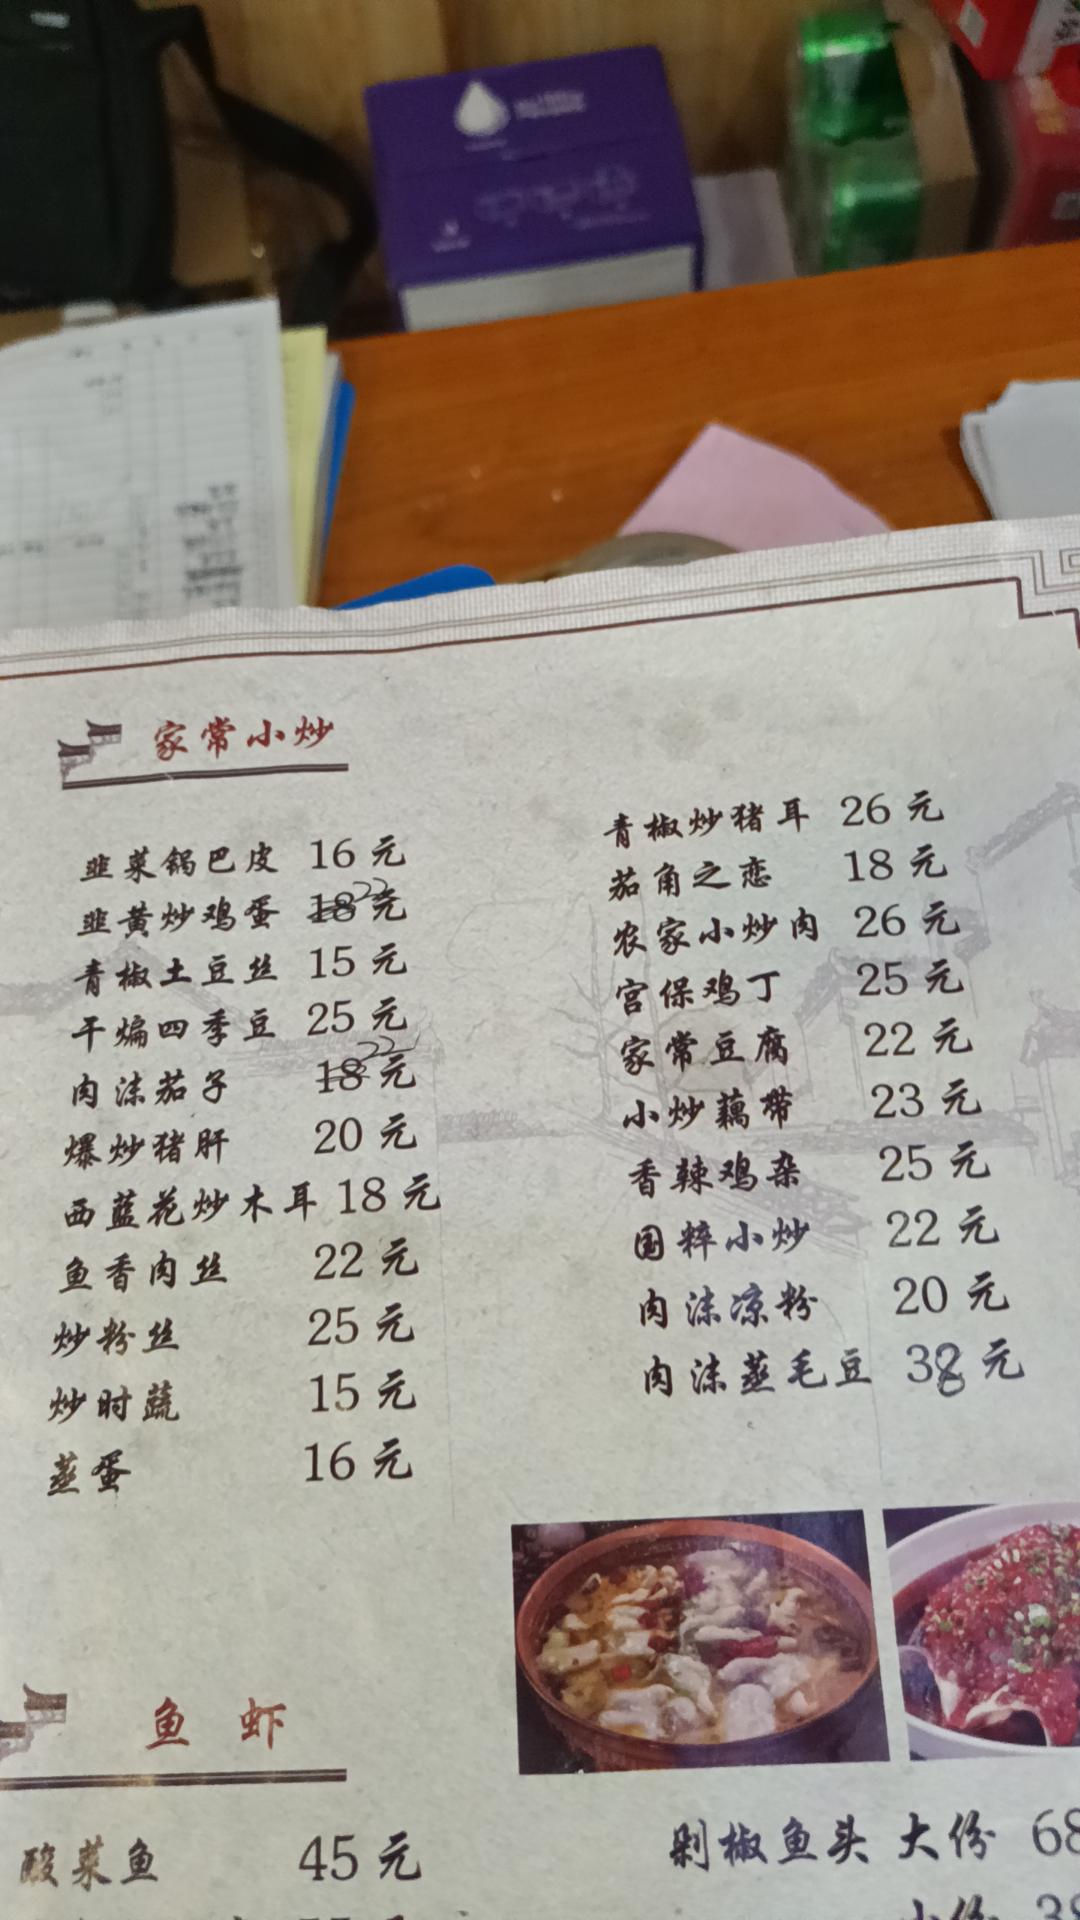 家常小炒
韭菜锅巴皮 16元
韭黄炒鸡蛋 18元 22
青椒土豆丝 15元
干煸四季豆 25元
肉沫茄子 18元 22
爆炒猪肝 20元
西蓝花炒木耳 18元
鱼香肉丝 22元
炒粉丝 25元
炒时蔬 15元
蒸蛋 16元
青椒炒猪耳 26元
茄角之恋 18元
农家小炒肉 26元
宫保鸡丁 25元
家常豆腐 22元
小炒藕带 23元
香辣鸡杂 25元
国粹小炒 22元
肉沫凉粉 20元
肉沫蒸毛豆 38元
鱼虾
酸菜鱼 45元
剁椒鱼头 大份 68
小份 38